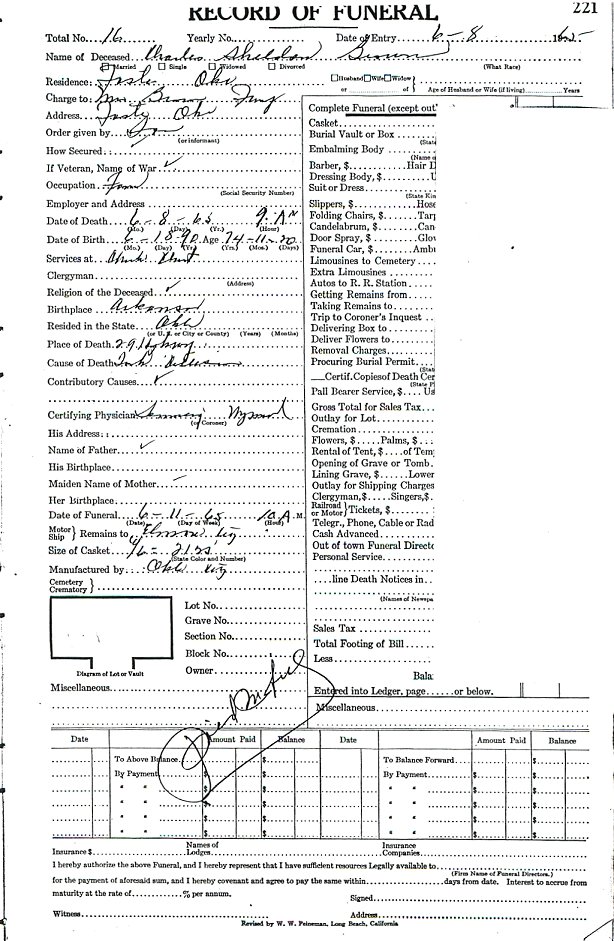 RECORD OF FUNERAL
221
Total No. 16 Yearly No. Date of Entry 6-8 1965
Name of Deceased Charles Sheldon Brown
Married Single Widowed Divorced (What Race)
Residence: Okla Husband Wife Widow
or of Age of Husband or Wife (if living) Years
Charge to: Mrs. Brown
Address Okla
Order given by Son
(or informant)
How Secured
If Veteran, Name of War
Occupation
(Social Security Number)
Employer and Address
Date of Death 6-8-65 9:AM
(Mo.) (Day) (Yr.) (Hour)
Date of Birth 6-18-90 Age 74-11-20
(Mo.) (Day) (Yr.) (Yrs.) (Mos.) (Days)
Services at
Clergyman
(Address)
Religion of the Deceased
Birthplace Arkansas
Resided in the State Okla
(or U. S. or City or County) (Years) (Months)
Place of Death
Cause of Death
Contributory Causes
Certifying Physician
(or Coroner)
His Address:
Name of Father
His Birthplace
Maiden Name of Mother
Her Birthplace
Date of Funeral 6-11-65 10 A.M.
(Date) (Day of Week) (Hour)
Motor Ship Remains to
Size of Casket
(State Color and Number)
Manufactured by Okla
Cemetery Crematory
Diagram of Lot or Vault
Lot No.
Grave No.
Section No.
Block No.
Owner
Miscellaneous
Complete Funeral (except out'
Casket
Burial Vault or Box
(State
Embalming Body
(Name o
Barber, $ Hair D
Dressing Body, $
Suit or Dress
(State Kin
Slippers, $ Hose
Folding Chairs, $ Tar
Candelabrum, $ Can
Door Spray, $ Glo
Funeral Car, $ Amb
Limousines to Cemetery
Extra Limousines
Autos to R. R. Station
Getting Remains from
Taking Remains to
Trip to Coroner's Inquest
Delivering Box to
Deliver Flowers to
Removal Charges
Procuring Burial Permit
(Stat
Certif. Copies of Death Cer
(State P
Pall Bearer Service, $ Us
Gross Total for Sales Tax
Outlay for Lot
Cremation
Flowers, $ Palms, $
Rental of Tent, $ of Tem
Opening of Grave or Tomb
Lining Grave, $ Lower
Outlay for Shipping Charges
Clergyman, $ Singers, $
Railroad or Motor Tickets, $
Telegr., Phone, Cable or Rad
Cash Advanced
Out of town Funeral Directo
Personal Service
line Death Notices in
(Names of Newspa
Sales Tax
Total Footing of Bill
Less
Bala
Entered into Ledger, page or below.
Miscellaneous
Date Amount Paid Balance Date Amount Paid Balance
To Above Balance $ $ To Balance Forward $ $
By Payment $ $ By Payment $ $
" " $ $ " " $ $
" " $ $ " " $ $
" " $ $ " " $ $
" " $ $ " " $ $
Insurance $ Names of Lodges Insurance Companies
I hereby authorize the above Funeral, and I hereby represent that I have sufficient resources Legally available to
(Firm Name of Funeral Directors.)
for the payment of aforesaid sum, and I hereby covenant and agree to pay the same within days from date. Interest to accrue from
maturity at the rate of % per annum.
Signed
Witness Address
Revised by W. W. Feineman, Long Beach, California